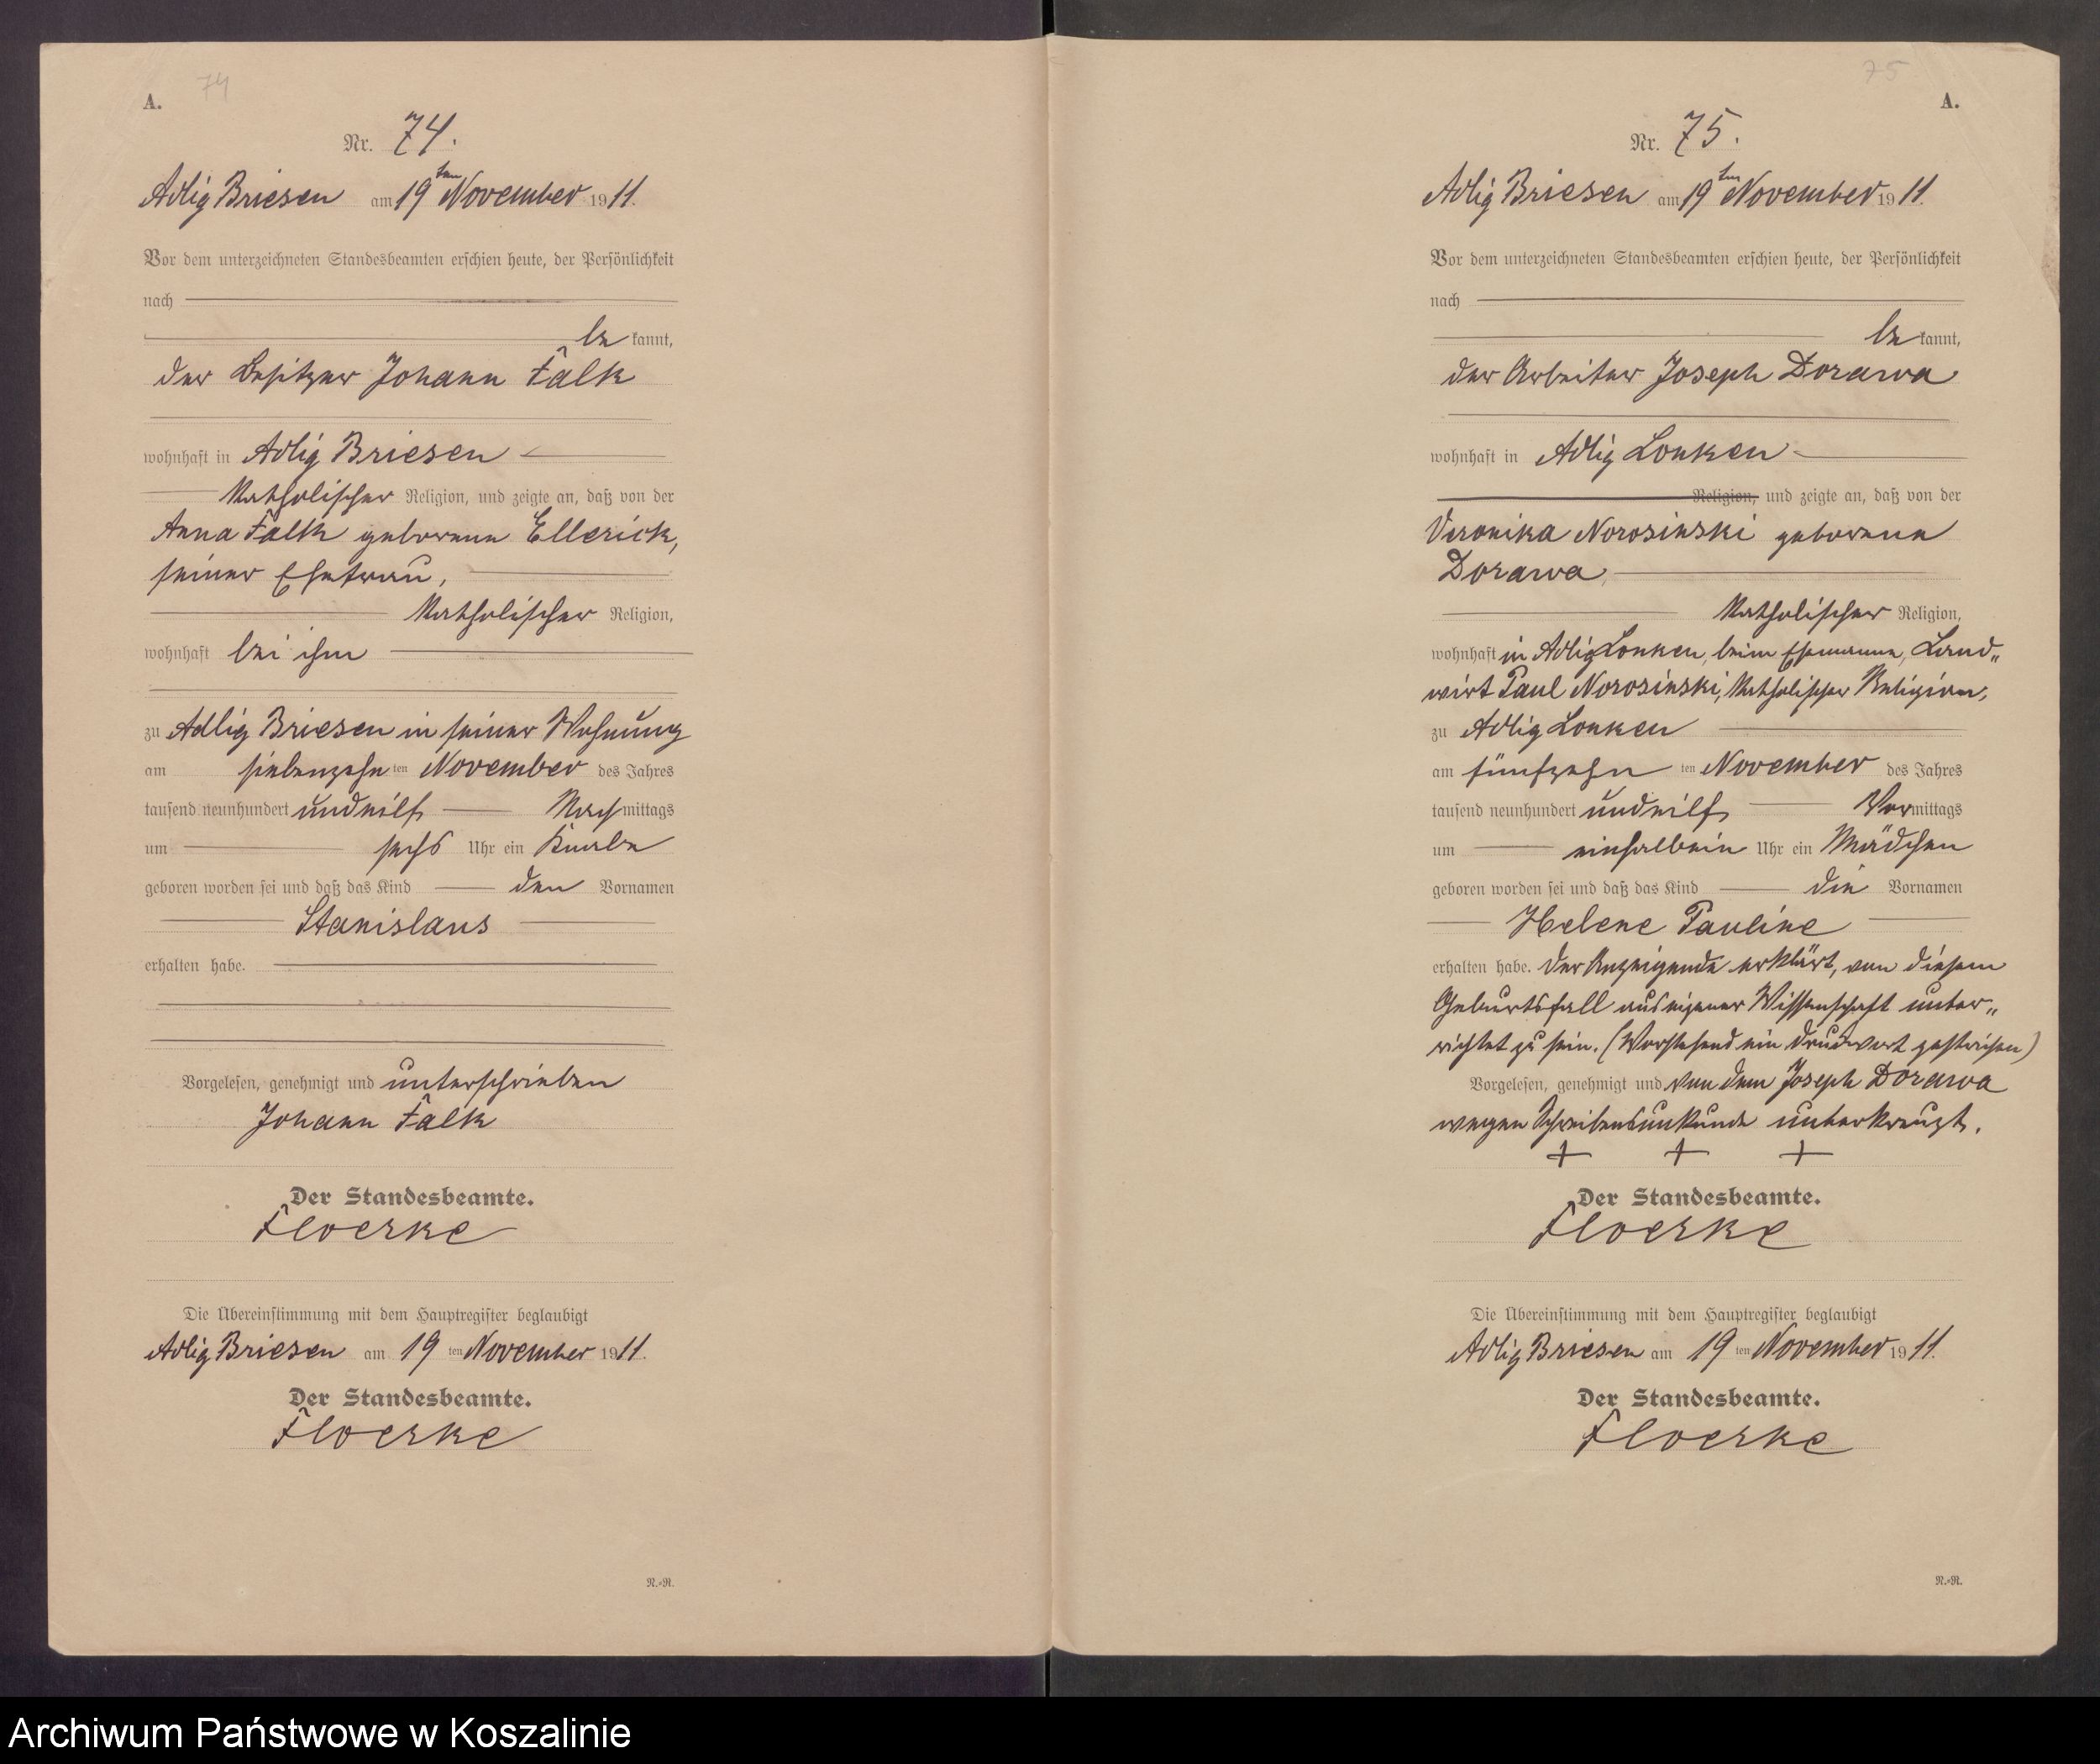 74
A.
Nr. 74.
Adlig Briesen am 19ten November 1911.
Vor dem unterzeichneten Standesbeamten erschien heute, der Persönlichkeit
nach
be kannt,
der Besitzer Johann Falk
wohnhaft in Adlig Briesen
katholischer Religion, und zeigte an, daß von der
Anna Falk geborene Ellerick,
seiner Ehefrau,
katholischer Religion,
wohnhaft bei ihm
zu Adlig Briesen in seiner Wohnung
am siebenzehn ten November des Jahres
tausend neunhundert undeilf Nachmittags
um sechs Uhr ein Knabe
geboren worden sei und daß das Kind den Vornamen
Stanislaus
erhalten habe.
Vorgelesen, genehmigt und unterschrieben
Johann Falk
Der Standesbeamte.
Floerke
Die Übereinstimmung mit dem Hauptregister beglaubigt
Adlig Briesen am 19 ten November 1911.
Der Standesbeamte.
Floerke
N.-N.
75
A.
Nr. 75.
Adlig Briesen am 19ten November 1911.
Vor dem unterzeichneten Standesbeamten erschien heute, der Persönlichkeit
nach
be kannt,
der Arbeiter Joseph Dorawa
wohnhaft in Adlig Lonken
Religion, und zeigte an, daß von der
Veronika Norosinski geborene
Dorawa,
katholischer Religion,
wohnhaft in Adlig Lonken, beim Ehemanne, Land„
wirt Paul Norosinski, katholischer Religion,
zu Adlig Lonken
am fünfzehn ten November des Jahres
tausend neunhundert undeilf Vormittags
um einhalbein Uhr ein Mädchen
geboren worden sei und daß das Kind die Vornamen
Helene Pauline
erhalten habe. Der Anzeigende erklärt, von diesem
Geburtsfall aus eigener Wissenschaft unter„
richtet zu sein. (Vorstehend ein Druckwort gestrichen)
Vorgelesen, genehmigt und von dem Joseph Dorawa
wegen Schreibensunkunde unterkreuzt.
+ + +
Der Standesbeamte.
Floerke
Die Übereinstimmung mit dem Hauptregister beglaubigt
Adlig Briesen am 19 ten November 1911.
Der Standesbeamte.
Floerke
N.-N.
Archiwum Państwowe w Koszalinie